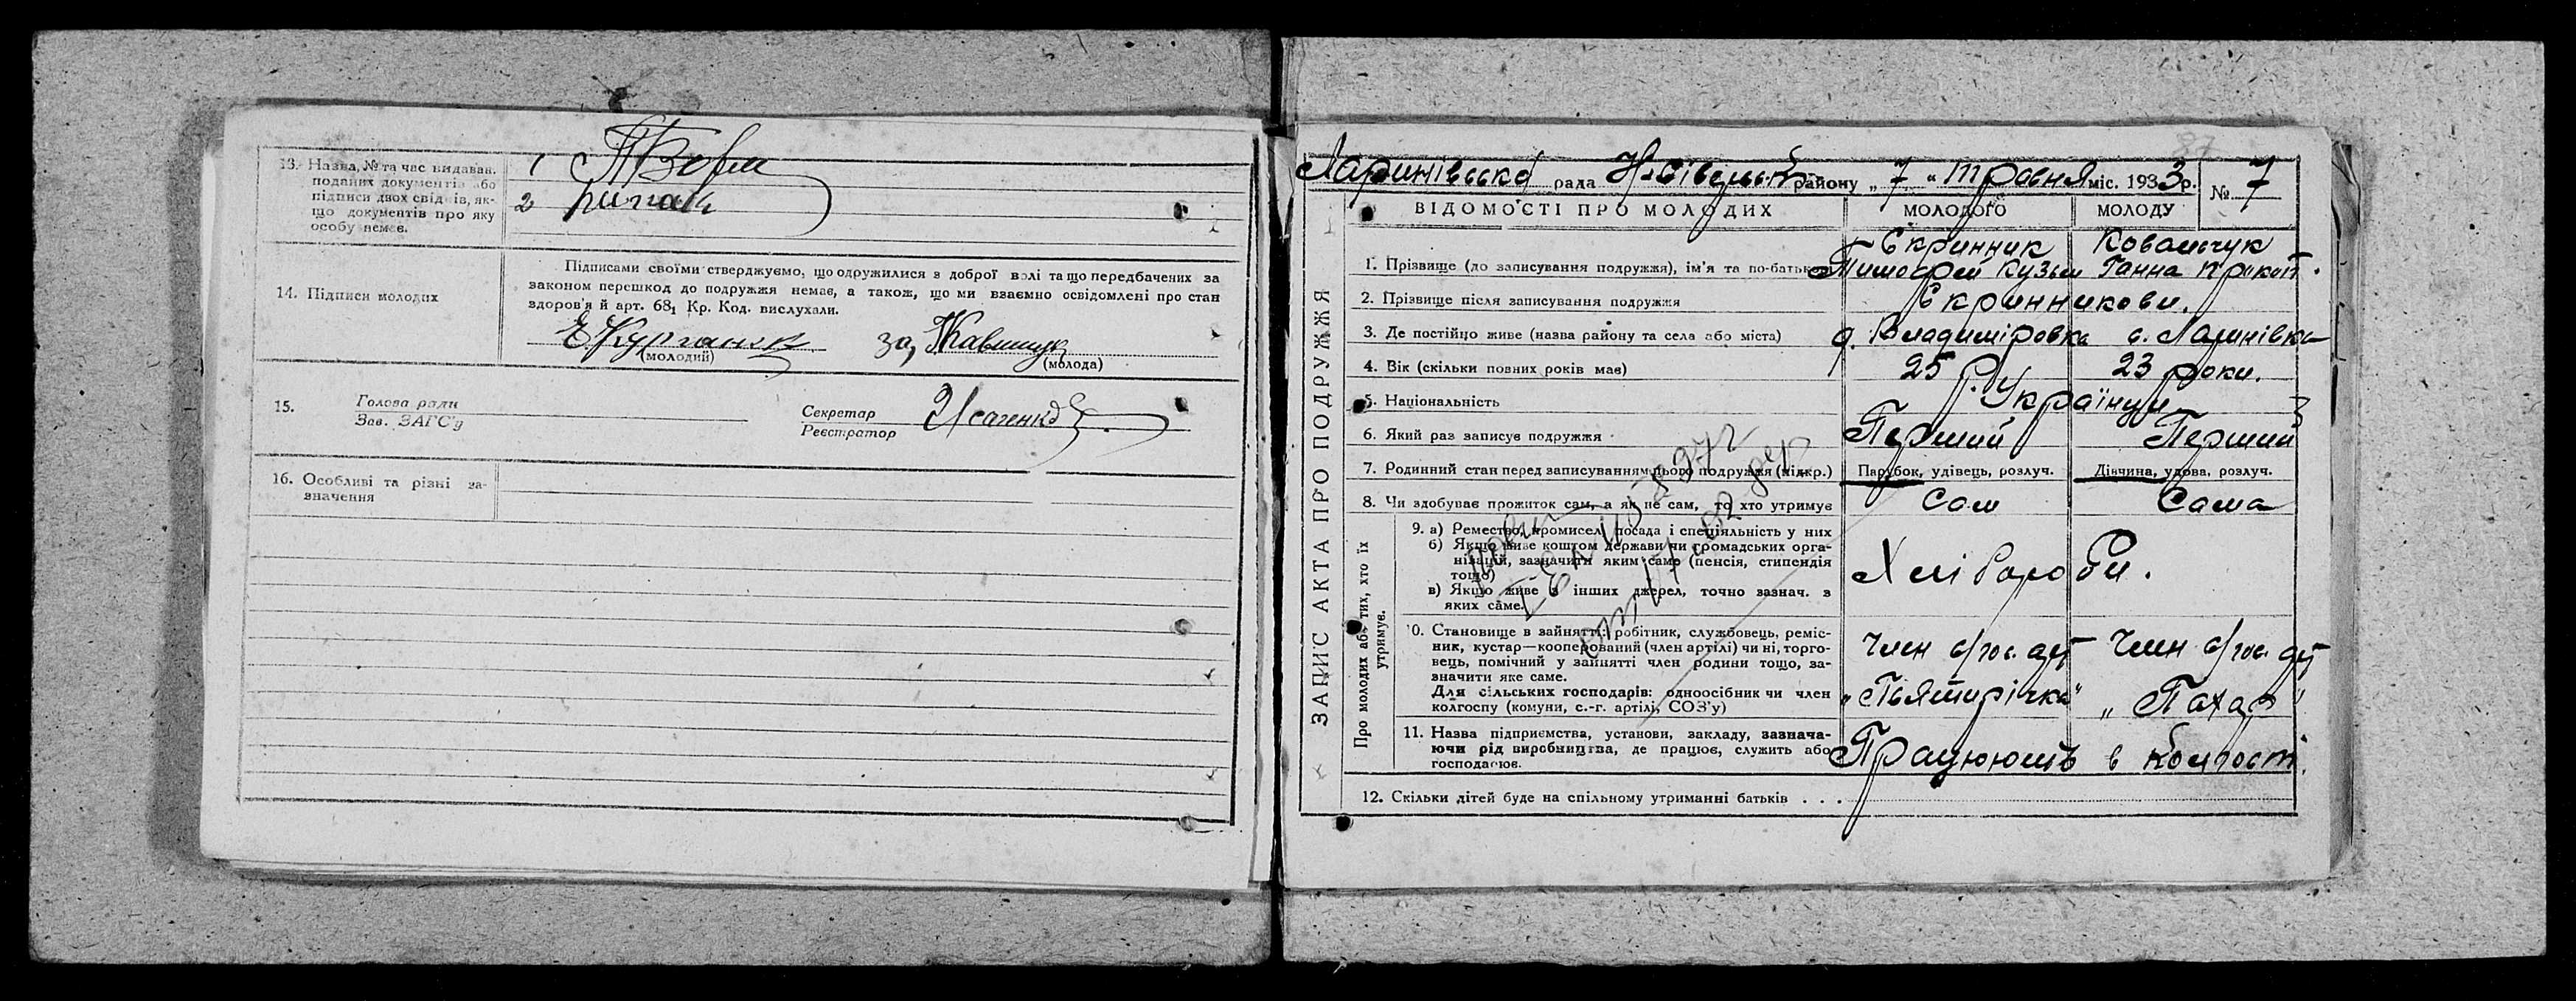 13. Назва, № та час видаван.
поданих документів або
підписи двох свідків, як-
що документів про яку
особу немає.
1
2
14. Підписи молодих
Підписами своїми стверджуємо, що одружилися з доброї волі та що передбачених за
законом перешкод до подружжя немає, а також, що ми взаємно освідомлені про стан
здоров'я й арт. 68₁ Кр. Код. вислухали.
(молодий)
за
(молода)
15.
Голова ради
Зав. ЗАГС'у
Секретар
Реєстратор
Исаенко
16. Особливі та різні за-
значення
рада
району „7“ травня міс. 1933р.
№ 7
ЗАПИС АКТА ПРО ПОДРУЖЖЯ
ВІДОМОСТІ ПРО МОЛОДИХ
МОЛОДОГО
МОЛОДУ
1. Прізвище (до записування подружжя), ім'я та по-батькові
Скринник
Тимофей Кузьм
Ковальчук
Ганна Прокоп.
2. Прізвище після записування подружжя
Скринникови.
3. Де постійно живе (назва району та села або міста)
Владиміровка
с.
4. Вік (скільки повних років має)
25 р.
23 роки.
5. Національність
Українці
6. Який раз записує подружжя
Перший
Перший
7. Родинний стан перед записуванням цього подружжя (підкр.)
Парубок, удівець, розлуч.
Дівчина, удова, розлуч.
8. Чи здобуває прожиток сам, а як не сам, то хто утримує
Сам
Сама
Про молодих або тих, хто їх
утримує.
9. а) Ремество, промисел, посада і спеціяльність у них
б) Якщо живе коштом держави чи громадських орга-
нізацій, зазначити яким само (пенсія, стипендія
тощо)
в) Якщо живе з інших джерел, точно зазнач. з
яких саме.
Хлібороби.
10. Становище в зайнятті: робітник, службовець, реміс-
ник, кустар—кооперований (член артілі) чи ні, торго-
вець, помічний у зайнятті член родини тощо, за-
значити яке саме.
Для сільських господарів: одноосібник чи член
колгоспу (комуни, с.-г. артілі, СОЗ'у)
член с/гос. арт
„Пьятирічка“
член с/гос. арт
„Пахар“
11. Назва підприємства, установи, закладу, зазнача-
ючи рід виробництва, де працює, служить або
господарює.
Працюють в колгоспі.
12. Скільки дітей буде на спільному утриманні батьків . . .